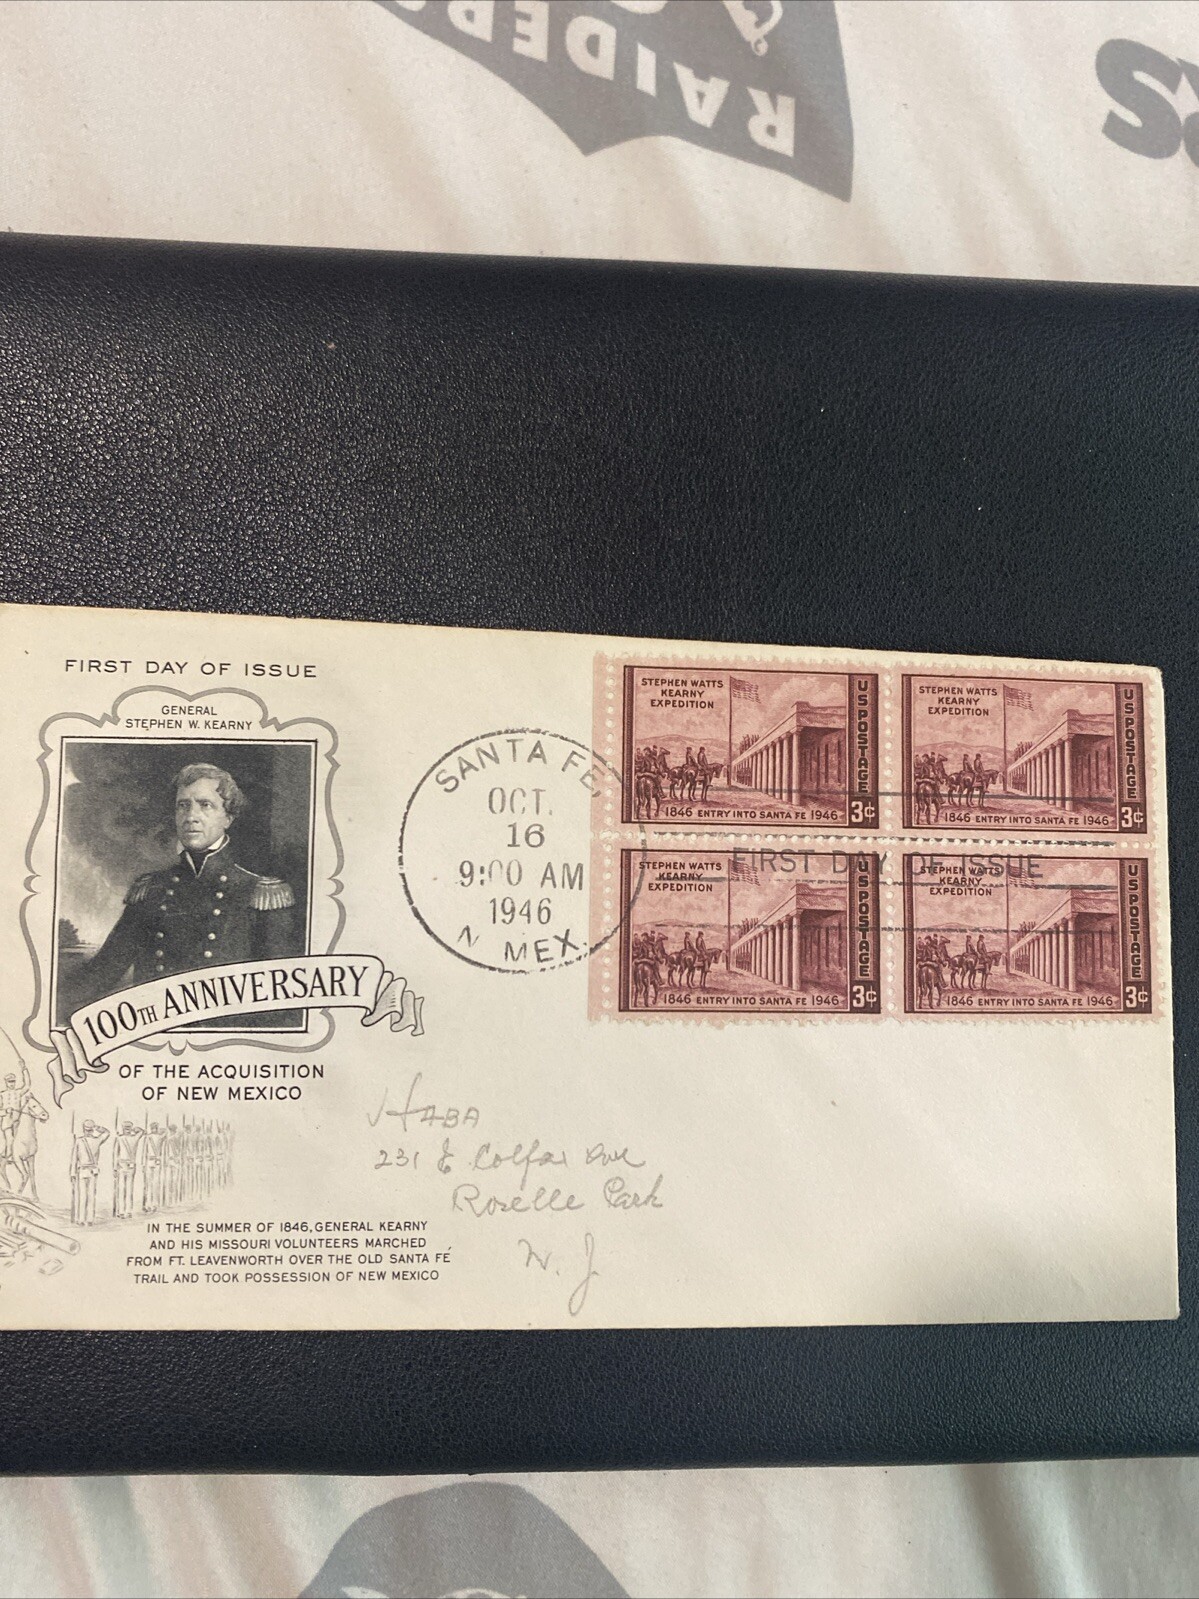 RAIDERS
FIRST DAY OF ISSUE
GENERAL
STEPHEN W. KEARNY
100TH ANNIVERSARY
OF THE ACQUISITION
OF NEW MEXICO
IN THE SUMMER OF 1846, GENERAL KEARNY
AND HIS MISSOURI VOLUNTEERS MARCHED
FROM FT. LEAVENWORTH OVER THE OLD SANTA FÉ
TRAIL AND TOOK POSSESSION OF NEW MEXICO
SANTA FE,
OCT.
16
9:00 AM
1946
N MEX.
STEPHEN WATTS
KEARNY
EXPEDITION
US POSTAGE
1846 ENTRY INTO SANTA FE 1946
3¢
STEPHEN WATTS
KEARNY
EXPEDITION
US POSTAGE
1846 ENTRY INTO SANTA FE 1946
3¢
FIRST DAY OF ISSUE
STEPHEN WATTS
KEARNY
EXPEDITION
US POSTAGE
1846 ENTRY INTO SANTA FE 1946
3¢
STEPHEN WATTS
KEARNY
EXPEDITION
US POSTAGE
1846 ENTRY INTO SANTA FE 1946
3¢
HABA
231 E Colfax Ave
Roselle Park
N. J.